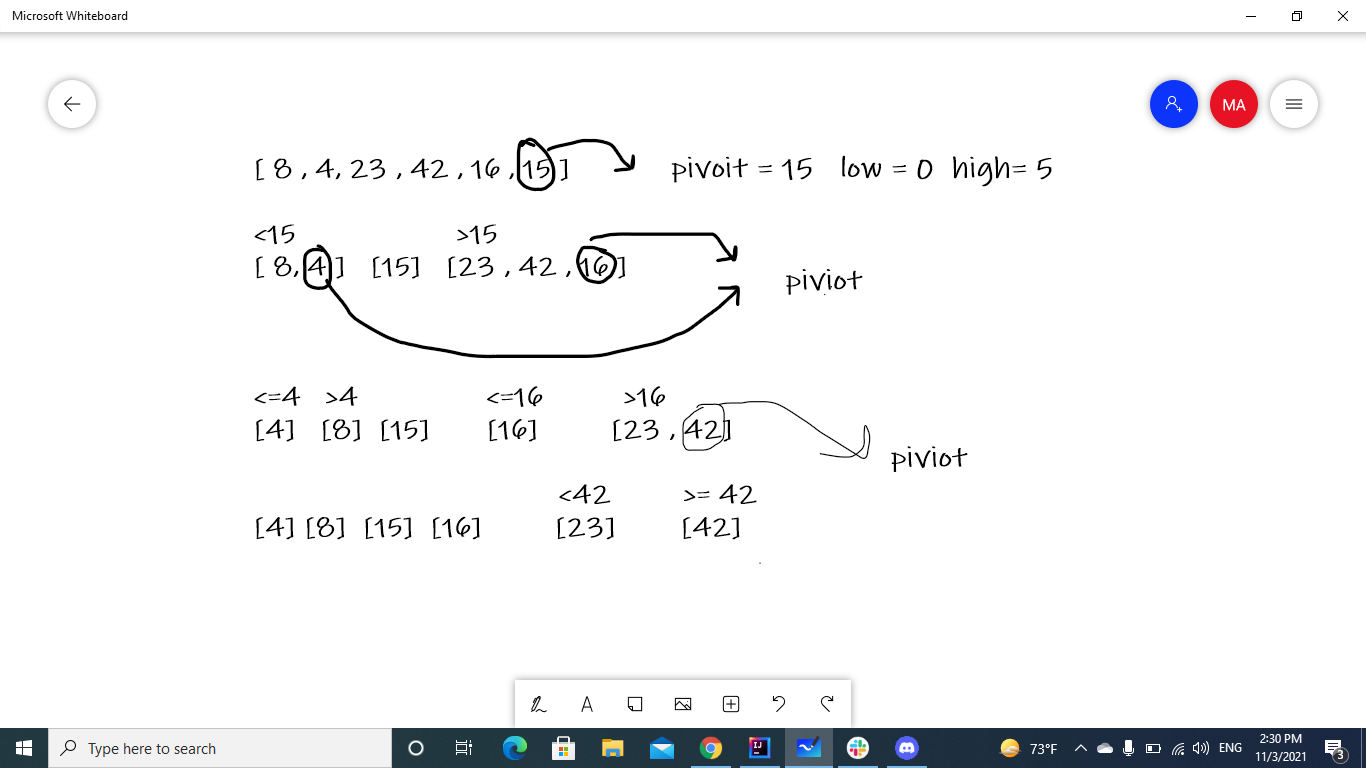 Microsoft Whiteboard
MA
[ 8 , 4, 23 , 42 , 16 , 15 ] pivoit = 15 low = 0 high= 5
<15 >15
[ 8, 4 ] [15] [23 , 42 , 16 ]
piviot
<=4 >4 <=16 >16
[4] [8] [15] [16] [23 , 42]
piviot
<42 >= 42
[4] [8] [15] [16] [23] [42]
A
Type here to search
73°F
ENG
2:30 PM
11/3/2021
3